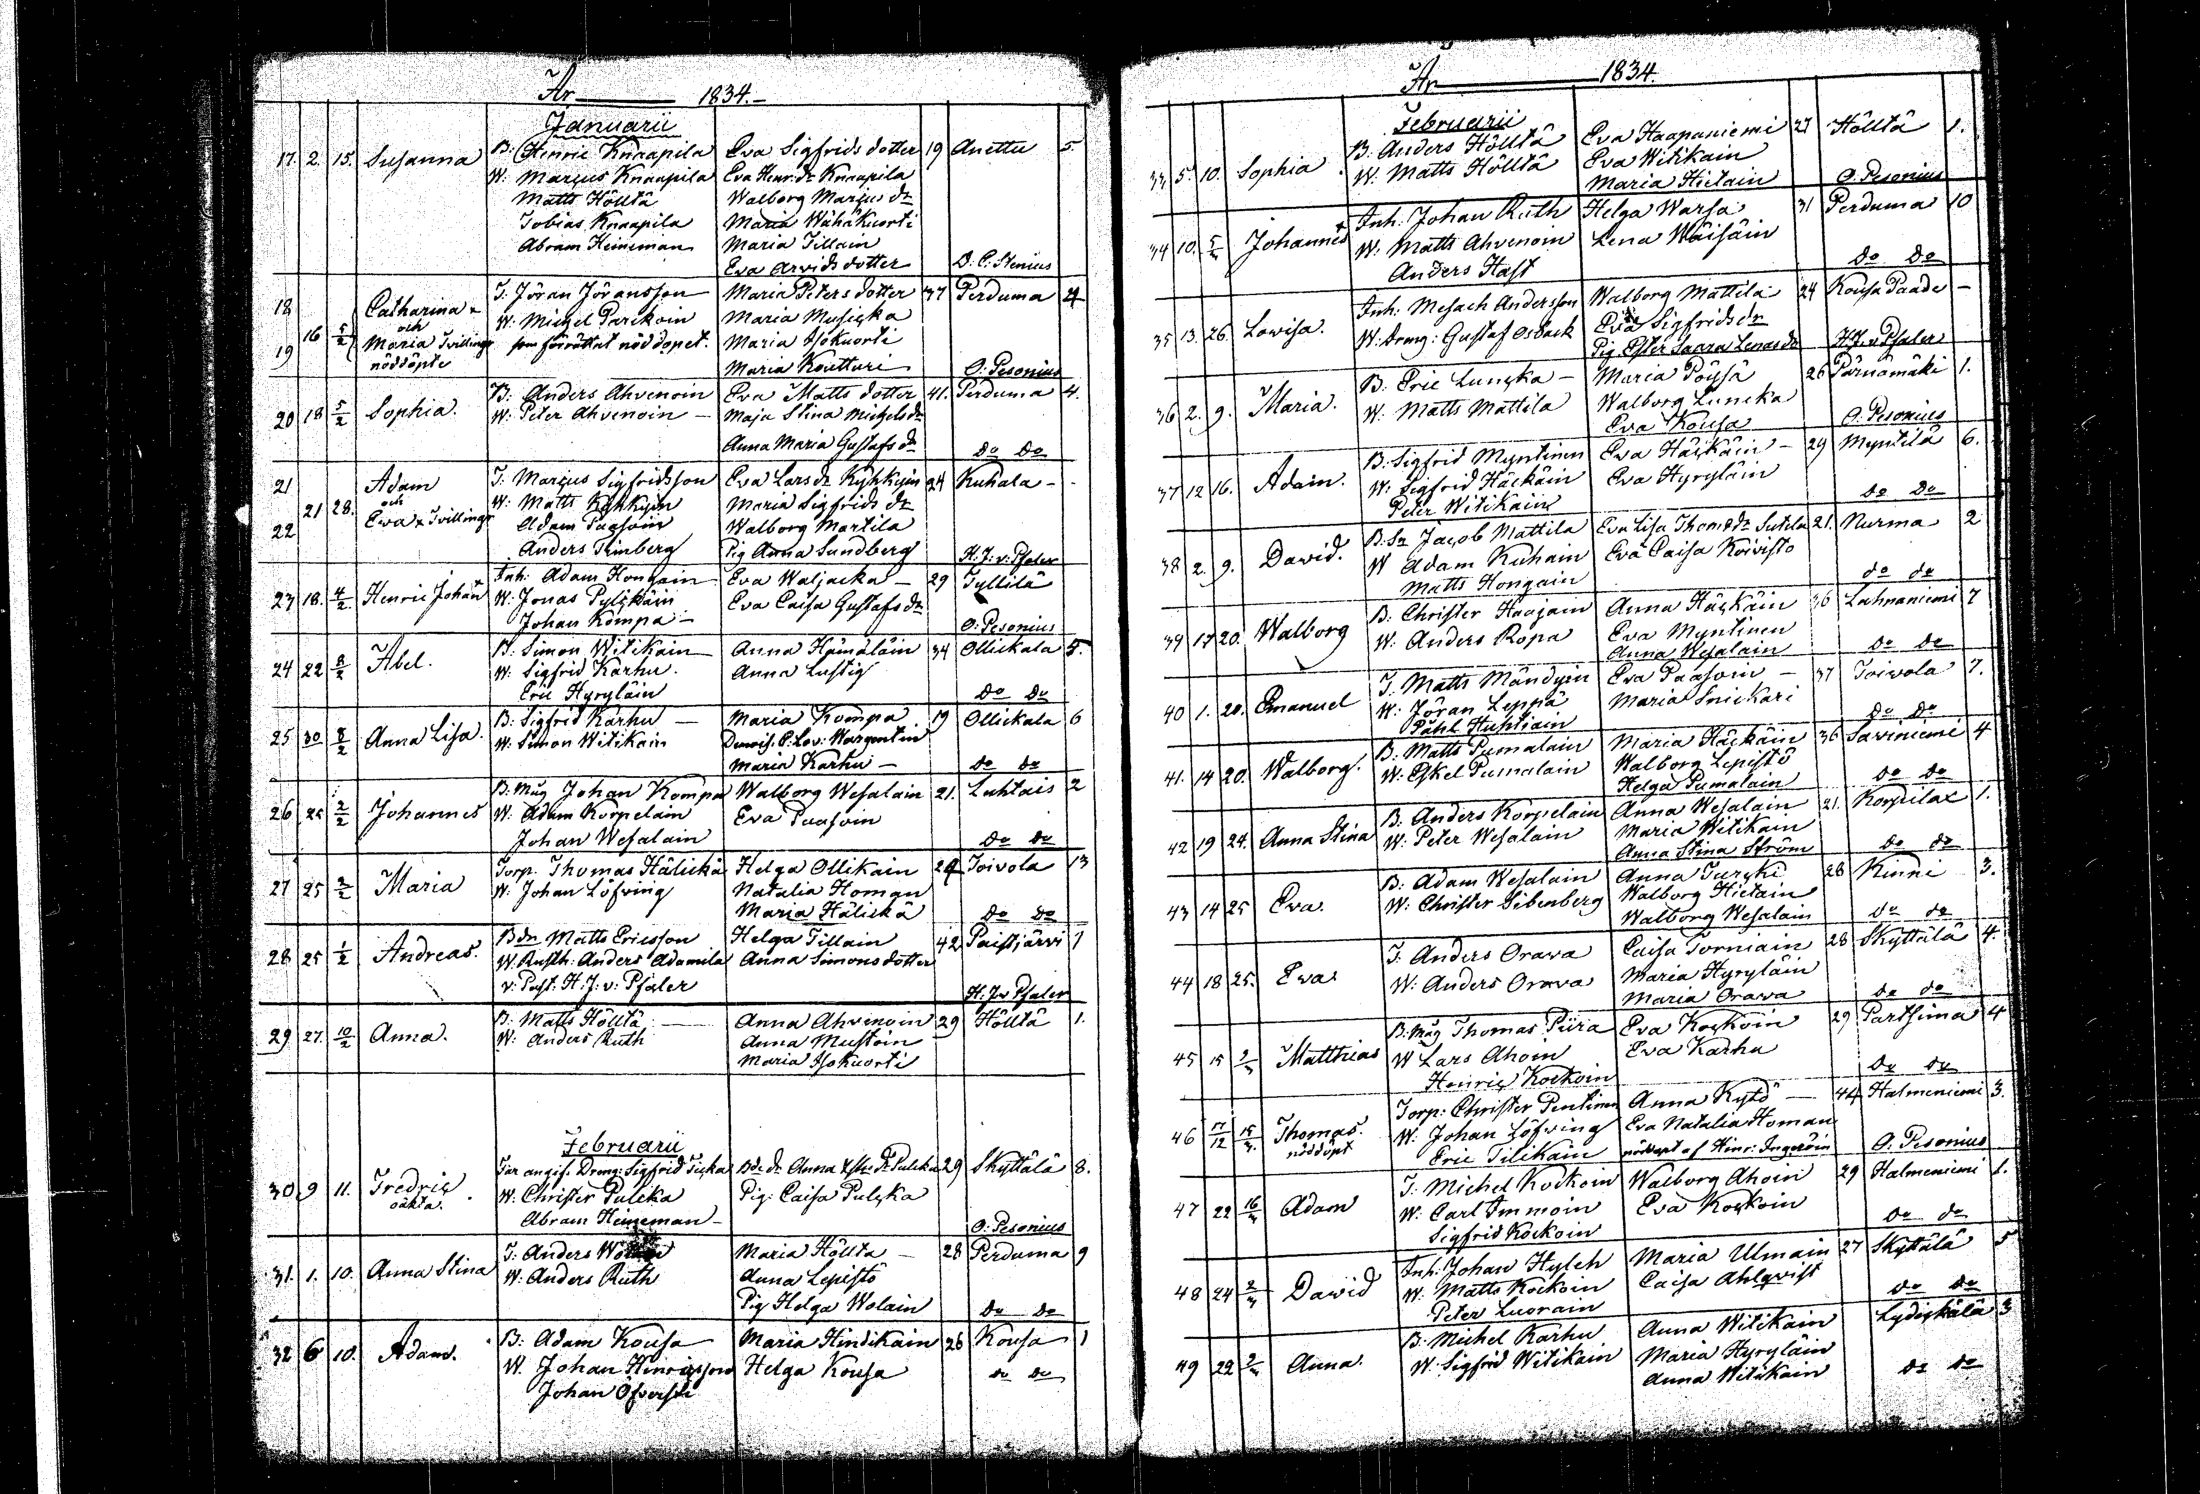 År 1834.
Januarii
17. 2. 15. Susanna B: Henric Knaapila Eva Sigfrids dotter 19 Anettu 5
W: Marcus Knaapila Eva Henr: dr Knaapila
Matts Hölltä Walborg Marcus dr
Tobias Knaapila Maria Wähäkuorti
Abram Heineman Maria Tillain
Eva Arvids dotter D. C. Stenius
18 16 5/2 Catharina T. Jöran Jöransson Maria Peters dotter 37 Perduma 4
och W: Michel Parckoin Maria Musicka
19 Maria Tvillingr som förrättat nöddopet. Maria Isokuorti
nöddöpte Maria Koutturi O: Pesonius
20 18 5/2 Sophia. B: Anders Ahvenoin Eva Matts dotter 41. Perduma 4.
W: Peter Ahvenoin Maja Stina Michels dr
Anna Maria Gustafs dr do do
21 21 28. Adam T: Marcus Sigfridsson Eva Lars dr Kyhkyin 24 Kuhala -
och W: Matts Kyhkyin Maria Sigfrids dr
22 Ewa Tvillingr Adam Paasoin Walborg Martila
Anders Timberg Pig Anna Sundberg H. J: v: Pfaler
23 18. 4/2 Henric Johan Inh: Adam Hongain Eva Waljacka 29 Tyllilä
W: Jonas Pylckäin Eva Caisa Gustafs dr
Johan Kompa - O: Pesonius
24 22 8/2 Abel. B: Simon Witikain Anna Hämäläin 34 Ollickala 5.
W: Sigfrid Karhu. Anna Lustig
Eric Hyryläin do do
25 30 8/2 Anna Lisa. B: Sigfrid Karhu Maria Kompa 19 Ollickala 6
W: Simon Witikain Demois. C. Lov: Wargentin
Maria Karhu - do do
26 25 2/2 Johannes B: Måg Johan Kompa Walborg Wesalain 21. Luhtais 2
W: Adam Korpelain Eva Paasoin
Johan Wesalain do do
27 25 2/2 Maria Torp. Thomas Hälickä Helga Ollikain 24 Toivola 13
W: Johan Löfving Natalia Homan
Maria Hälickä do do
28 25 1/2 Andreas. Bdr Matts Ericsson Helga Tillain 42 Paistjärvi 1
W. Rusth: Anders Adamila Anna Simons dotter
v: Past: H: J: v: Pfaler H: J v Pfaler
29 27. 10/2 Anna. B: Matts Höllta Anna Ahvenoin 29 Höllta 1.
W: Anders Ruth Anna Mustoin
Maria Isokuorti
Februarii
30 9 11. Fredric Far angif: Dreng: Sigfrid Ticka 29 Skyttälä 8.
oäkta. W: Christer Pulcka Pig: Caisa Pulcka
Abram Heineman - O: Pesonius
31. 1. 10. Anna Stina T: Anders Maria Höllta 28 Perduma 9
W: Anders Ruth Anna Lepistö
Pig Helga Wolain do do
32 6 10. Adam. B: Adam Kousa Maria Hindikain 26 Kousa 1
W. Johan Hinricsson Helga Kousa do do
Johan Öfversti
År 1834.
Februarii
33 5. 10. Sophia B: Anders Höllta Eva Haapaniemi 27 Höllta 1.
W: Matts Höllta Eva Witikain
Maria Hietain O. Pesonius
34 10. 5/3 Johannes Inh: Johan Ruth Helga Warsa 31 Perduma 10
W: Matts Ahvenoin Lena Wäisäin
Anders Hast do do
35 13. 26. Lovisa. Inh: Mesach Andersson Walborg Mattila 24 Kousa Paade -
W: Dreng: Gustaf Osback Eva Sigfrids dr
Pig Ester Saara Lenas dr H. J. v. Pfaler
36 2. 9. Maria. B: Eric Luncka - Maria Pöysä 26 Pärnämäki 1.
W: Matts Mattila Walborg Luncka
Eva Kousa O. Pesonius
37 12 16. Adam. B: Sigfrid Myntinen Eva Häckäin - 29 Myntilä 6.
W: Sigfrid Häckäin Eva Hyryläin
Peter Witikain do do
38 2. 9. David. B. Sn Jacob Mattila Eva Lisa Thoms dr Sutela 21. Nurma 2
W Adam Kuhain Eva Caisa Koivisto
Matts Hongain do do
39 17 20. Walborg B: Christer Haajain Anna Häckäin 36 Lahnaniemi 7
W: Anders Ropa Eva Myntinen
Anna Wesalain do do
40 1. 20. Emanuel T. Matts Mändyin Eva Paasoin - 37 Toivola 7.
W: Jöran Leppä Maria Snickari
Påhl Huhtiain do do
41. 14 20. Walborg. B: Matts Pumalain Maria Häckäin 36 Saviniemi 4
W: Eskel Pumalain Walborg Lepistö
Helga Pumalain do do
42 19 24. Anna Stina B: Anders Korpelain Anna Wesalain 21. Korpilax 1.
W: Peter Wesalain Maria Witikain
Anna Stina Ström do do
43 14 25 Eva. B: Adam Wesalain Anna Turcki 28 Kinni 3.
W: Christer Sibenberg Walborg Hietain
Walborg Wesalain do do
44 18 25. Ewa T: Anders Orava Caisa Torniain 28 Skyttälä 4.
W: Anders Orava Maria Hyryläin
Maria Orava do do
45 15 2/3 Matthias B: Måg Thomas Piira Eva Kockoin 29 Partsima 4
W Lars Ahoin Eva Karhu
Henric Kockoin do do
46 17/12 15/3 Thomas. Torp: Christer Pentinen Anna Kytö 44 Halmeniemi 3.
nöddöpt W: Johan Löfving Eva Natalia Homan
Eric Tilikain nöddöpt af Hinr: Ingeröin O. Pesonius
47 22 16/3 Adam T: Michel Kockoin Walborg Ahoin 29 Halmeniemi 1.
W: Carl Immoin Eva Kockoin
Sigfrid Kockoin do do
48 24 2/3 David Inh: Johan Hyleh Maria Ulmain 27 Skyttälä 5
W: Matts Kockoin Caisa Ahlqvist
Peter Luorain do do
49 22 2/3 Anna. B: Michel Karhu Anna Witikain Lydickälä 3
W: Sigfrid Witikain Maria Hyryläin
Anna Witikain do do